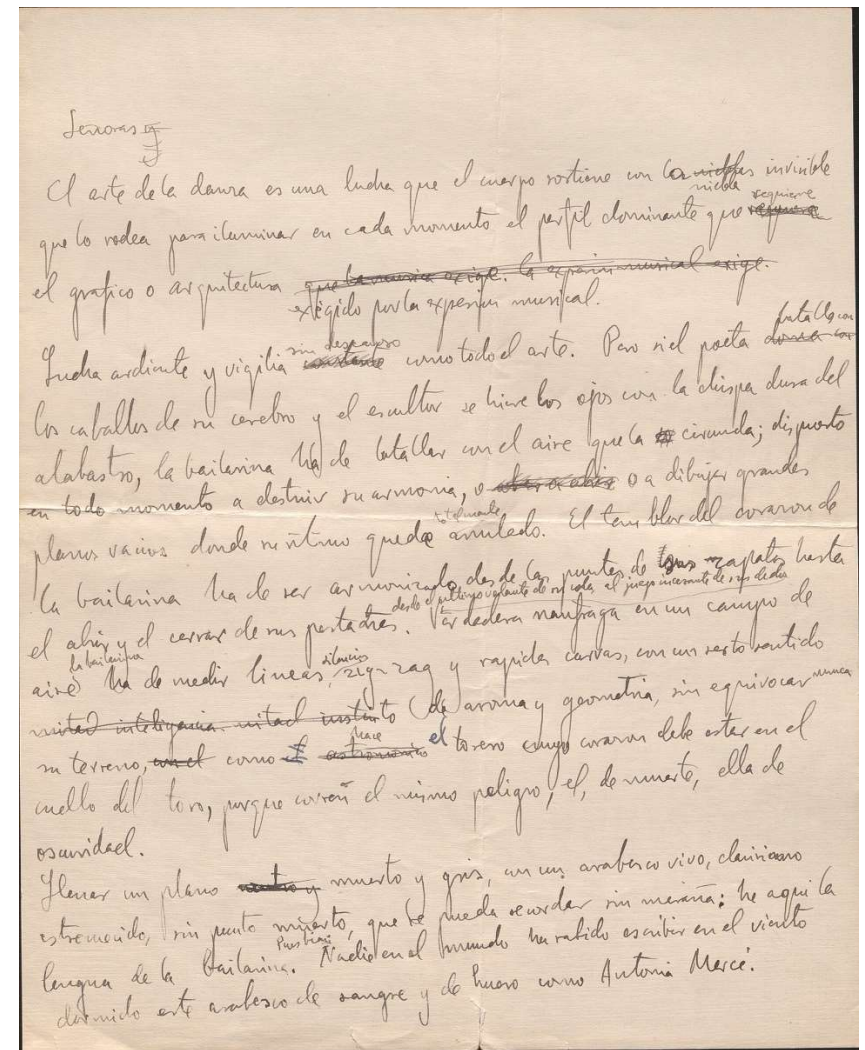 Señoras y
El arte de la danza es una lucha que el cuerpo sostiene con la niebla invisible
que lo rodea para iluminar en cada momento el perfil dominante que requiere
el grafico o arquitectura que la musica exige. la expresion musical exige.
exigido por la expresion musical.
Lucha ardiente y vigilia sin descanso como todo el arte. Pero si el poeta batalla con
los caballos de su cerebro y el escultor se hiere los ojos con la chispa dura del
alabastro, la bailarina ha de batallar con el aire que la circunda; dispuesto
en todo momento a destruir su armonia, o a dibujar grandes
planos vacios donde su ritmo quede totalmente anulado. El temblor del corazon de
la bailarina ha de ser armonizado desde las puntas de sus zapatos hasta
el abrir y el cerrar de sus pestañas. desde el ultimo volante de su cola, al juego incesante de sus dedos Verdadera naufraga en un campo de
aire la bailarina ha de medir lineas, silencios zig-zag y rapidas curvas, con un sexto sentido
mitad inteligencia mitad instinto de aroma y geometria, sin equivocar nunca
su terreno, como hace el torero cuyo corazon debe estar en el
cuello del toro, porque corren el mismo peligro, el, de muerte, ella de
oscuridad.
Llenar un plano muerto y gris, con un arabesco vivo, clarisimo
estremecido, sin punto muerto, que se pueda recordar sin maraña: he aqui la
lengua de la bailarina. Pues bien Nadie en el mundo ha sabido escribir en el viento
dormido este arabesco de sangre y de hueso como Antonia Mercé.